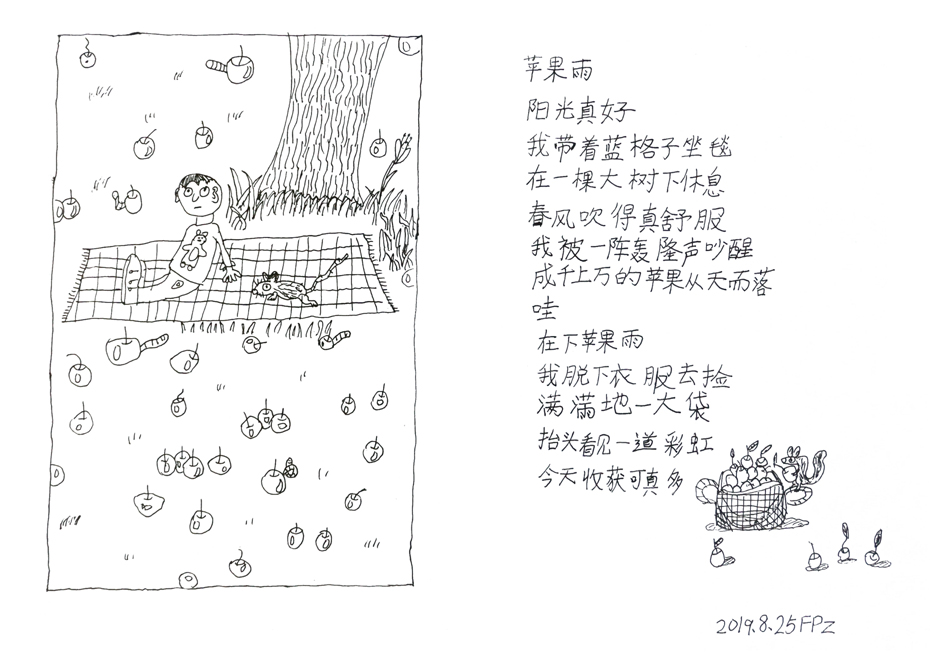 苹果雨
阳光真好
我带着蓝格子坐毯
在一棵大树下休息
春风吹得真舒服
我被一阵轰隆声吵醒
成千上万的苹果从天而落
哇
在下苹果雨
我脱下衣服去捡
满满地一大袋
抬头看见一道彩虹
今天收获可真多
2019.8.25FPZ